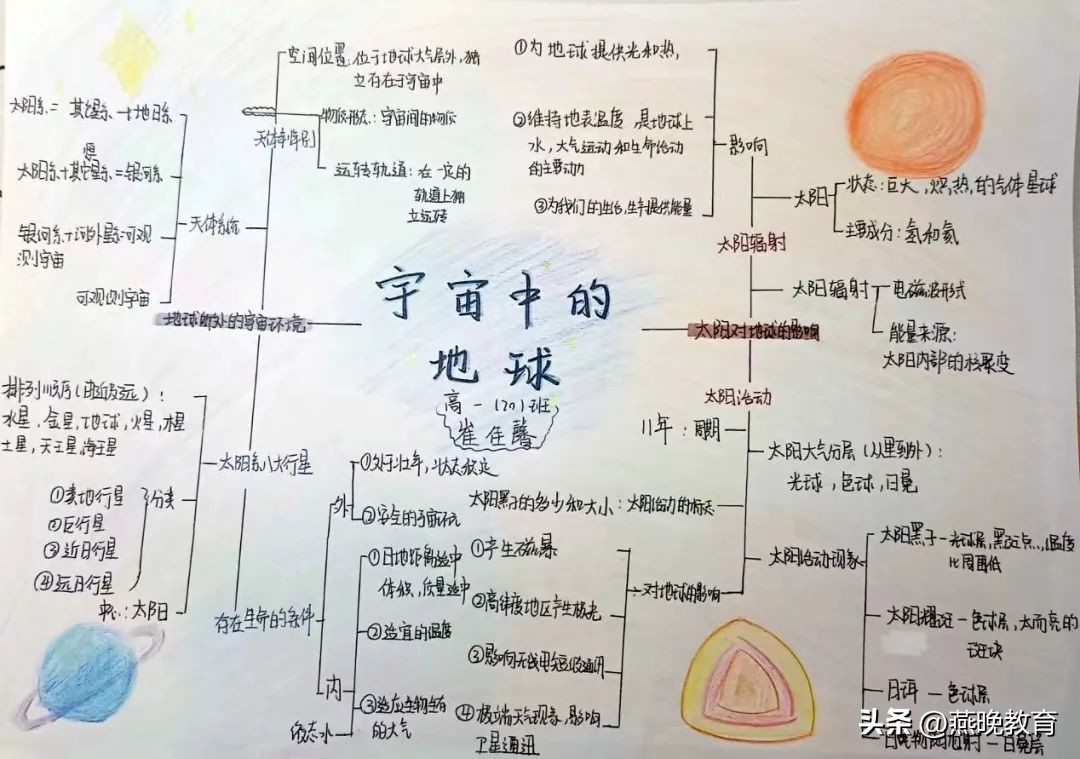 宇宙中的
地球
高一(20)班
崔佳馨
地球所处的宇宙环境
天体判别
空间位置,位于地球大气层外,独
立存在于宇宙中
物质形态:宇宙间的物质
运转轨道:在一定的
轨道上独
立运转
天体系统
太阳系=其它星系+地月系
太阳系+其它恒星系=银河系
银河系+河外星系=可观
测宇宙
可观测宇宙
太阳系八大行星
排列顺序(由近及远):
水星,金星,地球,火星,木星
土星,天王星,海王星
分类
①类地行星
②巨行星
③近日行星
④远日行星
中心:太阳
存在生命的条件
外
①处于壮年,状态稳定
②安全的宇宙环境
内
①日地距离适中
体积,质量适中
②适宜的温度
③适应生物生存
的大气
液态水
太阳对地球的影响
太阳辐射
影响
①为地球提供光和热,
②维持地表温度 是地球上
水,大气运动和生命活动
的主要动力
③为我们的生活,生产提供能量
太阳
状态:巨大,炽热,的气体星球
主要成分:氢和氦
太阳辐射
电磁波形式
能量来源:
太阳内部的核聚变
太阳活动
11年:周期
太阳大气分层(从里到外):
光球,色球,日冕
太阳黑子的多少和大小:太阳活动的标志
太阳活动现象
太阳黑子-光球层,黑斑点,温度
比周围低
太阳耀斑-色球层,大而亮的
斑块
日珥-色球层
日冕物质抛射-日冕层
对地球的影响
①产生磁暴
②高纬度地区产生极光
③影响无线电短波通讯
④极端天气现象,影响
卫星通讯
头条@燕晚教育